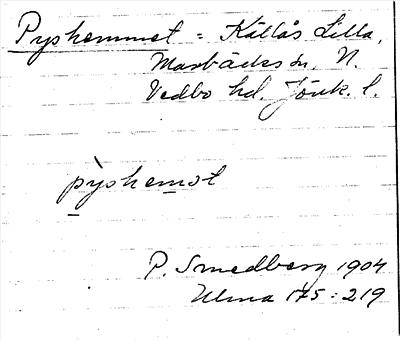 Pyshemmet = Källås Lilla,
Marbäcks sn. N.
Vedbo hd. Jönk. l.
pỳshemət
P. Smedberg 1904
Ulma 175:219